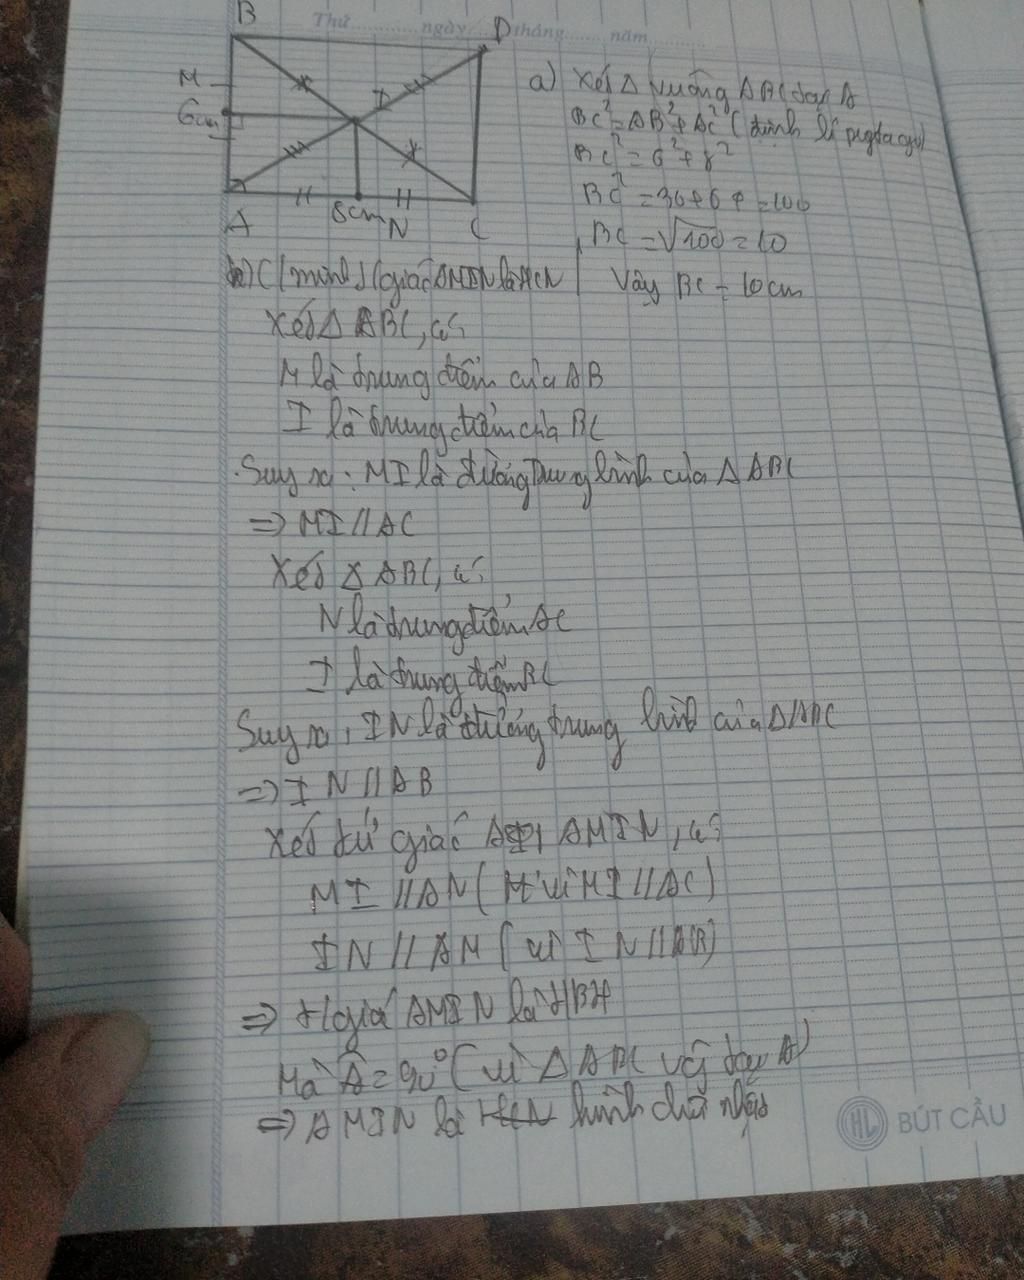 B
Thứ ngày tháng năm
D
M
6cm
I
A
8cm
N
C
a) Xét Δ vuông ABC tại A
BC² = AB² + AC² (định lí pytago)
BC² = 6² + 8²
BC² = 36 + 64 = 100
BC = √100 = 10
Vậy BC = 10cm
b) C/minh t/giác AMIN là HCN
Xét Δ ABC, có:
M là trung điểm của AB
I là trung điểm của BC
Suy ra: MI là đường trung bình của Δ ABC
=> MI // AC
Xét Δ ABC, có:
N là trung điểm AC
I là trung điểm BC
Suy ra: IN là đường trung bình của Δ ABC
=> IN // AB
Xét tứ giác AMIN, có:
MI // AN (vì MI // AC)
IN // AM (vì IN // AB)
=> t/giác AMIN là HBH
Mà Â = 90° (vì Δ ABC vg tại A)
=> AMIN là HCN hình chữ nhật
HL BÚT CẦU